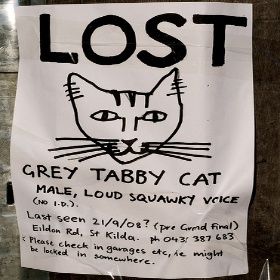 LOST
GREY TABBY CAT
MALE, LOUD SQUAWKY VOICE
(NO I.D.).
Last seen 21/9/08? (pre Grand final)
Eildon Rd, St Kilda. ph 043 387 683
: Please check in garages etc, i.e. might
be locked in somewhere.